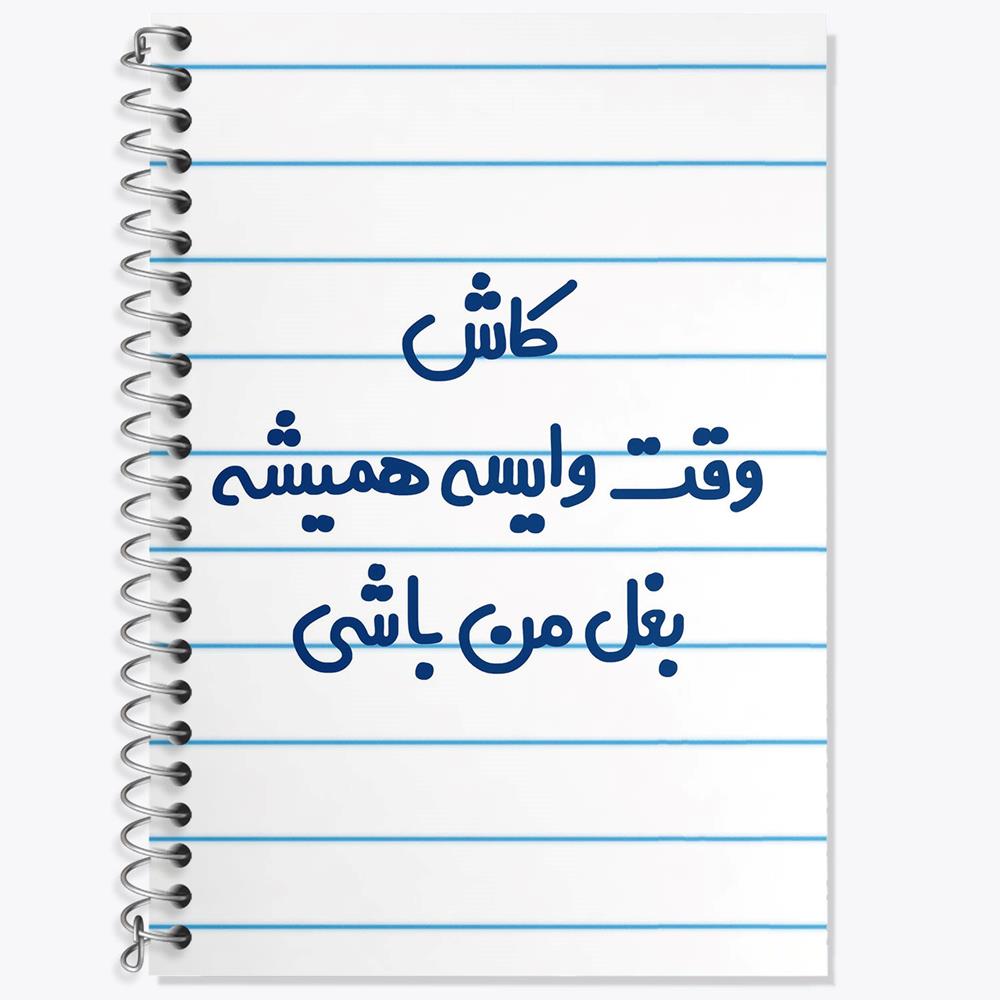 کاش
وقت وایسه همیشه
بغل من باشی